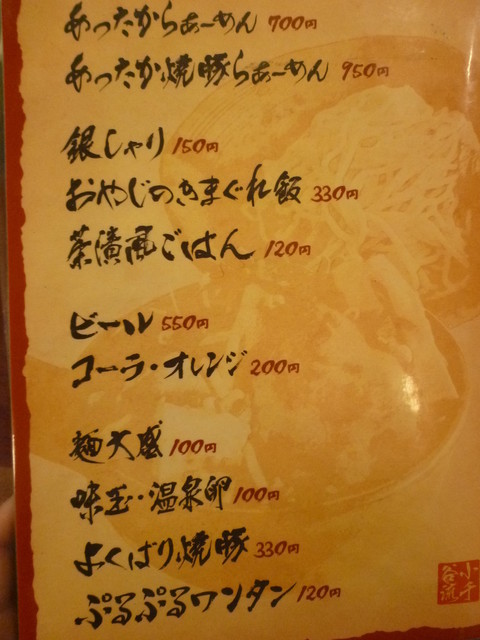 あったからぁーめん 700円
あったか焼豚らぁーめん 950円
銀しゃり 150円
おやじのきまぐれ飯 330円
茶漬風ごはん 120円
ビール 550円
コーラ・オレンジ 200円
麺大盛 100円
味玉・温泉卵 100円
よくばり焼豚 330円
ぷるぷるワンタン 120円
小千谷流